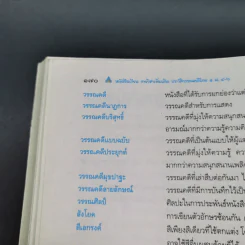 ๑๗๐
วรรณคดี หนังสือที่ได้รับการยกย่องว่าแต่
วรรณคดีนาฏการ วรรณคดีสำหรับการแสดง
วรรณคดีบริสุทธิ์ วรรณคดีที่มุ่งให้ความสนุกสนาน
อารมณ์มากกว่าความรู้ความคิ
วรรณคดีแบบฉบับ วรรณคดีที่เป็นต้นแบบให้ผู้แ
วรรณคดีประยุกต์ วรรณคดีที่มุ่งให้ความรู้ ความ
มากกว่าความสนุกสนานเพลิ
วรรณคดีมุขปาฐะ วรรณคดีที่เล่าสืบต่อกันมา ไ
วรรณคดีลายลักษณ์ วรรณคดีที่มีการบันทึกไว้เป็น
วรรณศิลป์ ศิลปะในการประพันธ์หนังสือ
สังโยค การเขียนตัวอักษรซ้อนกัน
สีเอกรงค์ สีเพียงสีเดียวที่ใช้ตกแต่ง